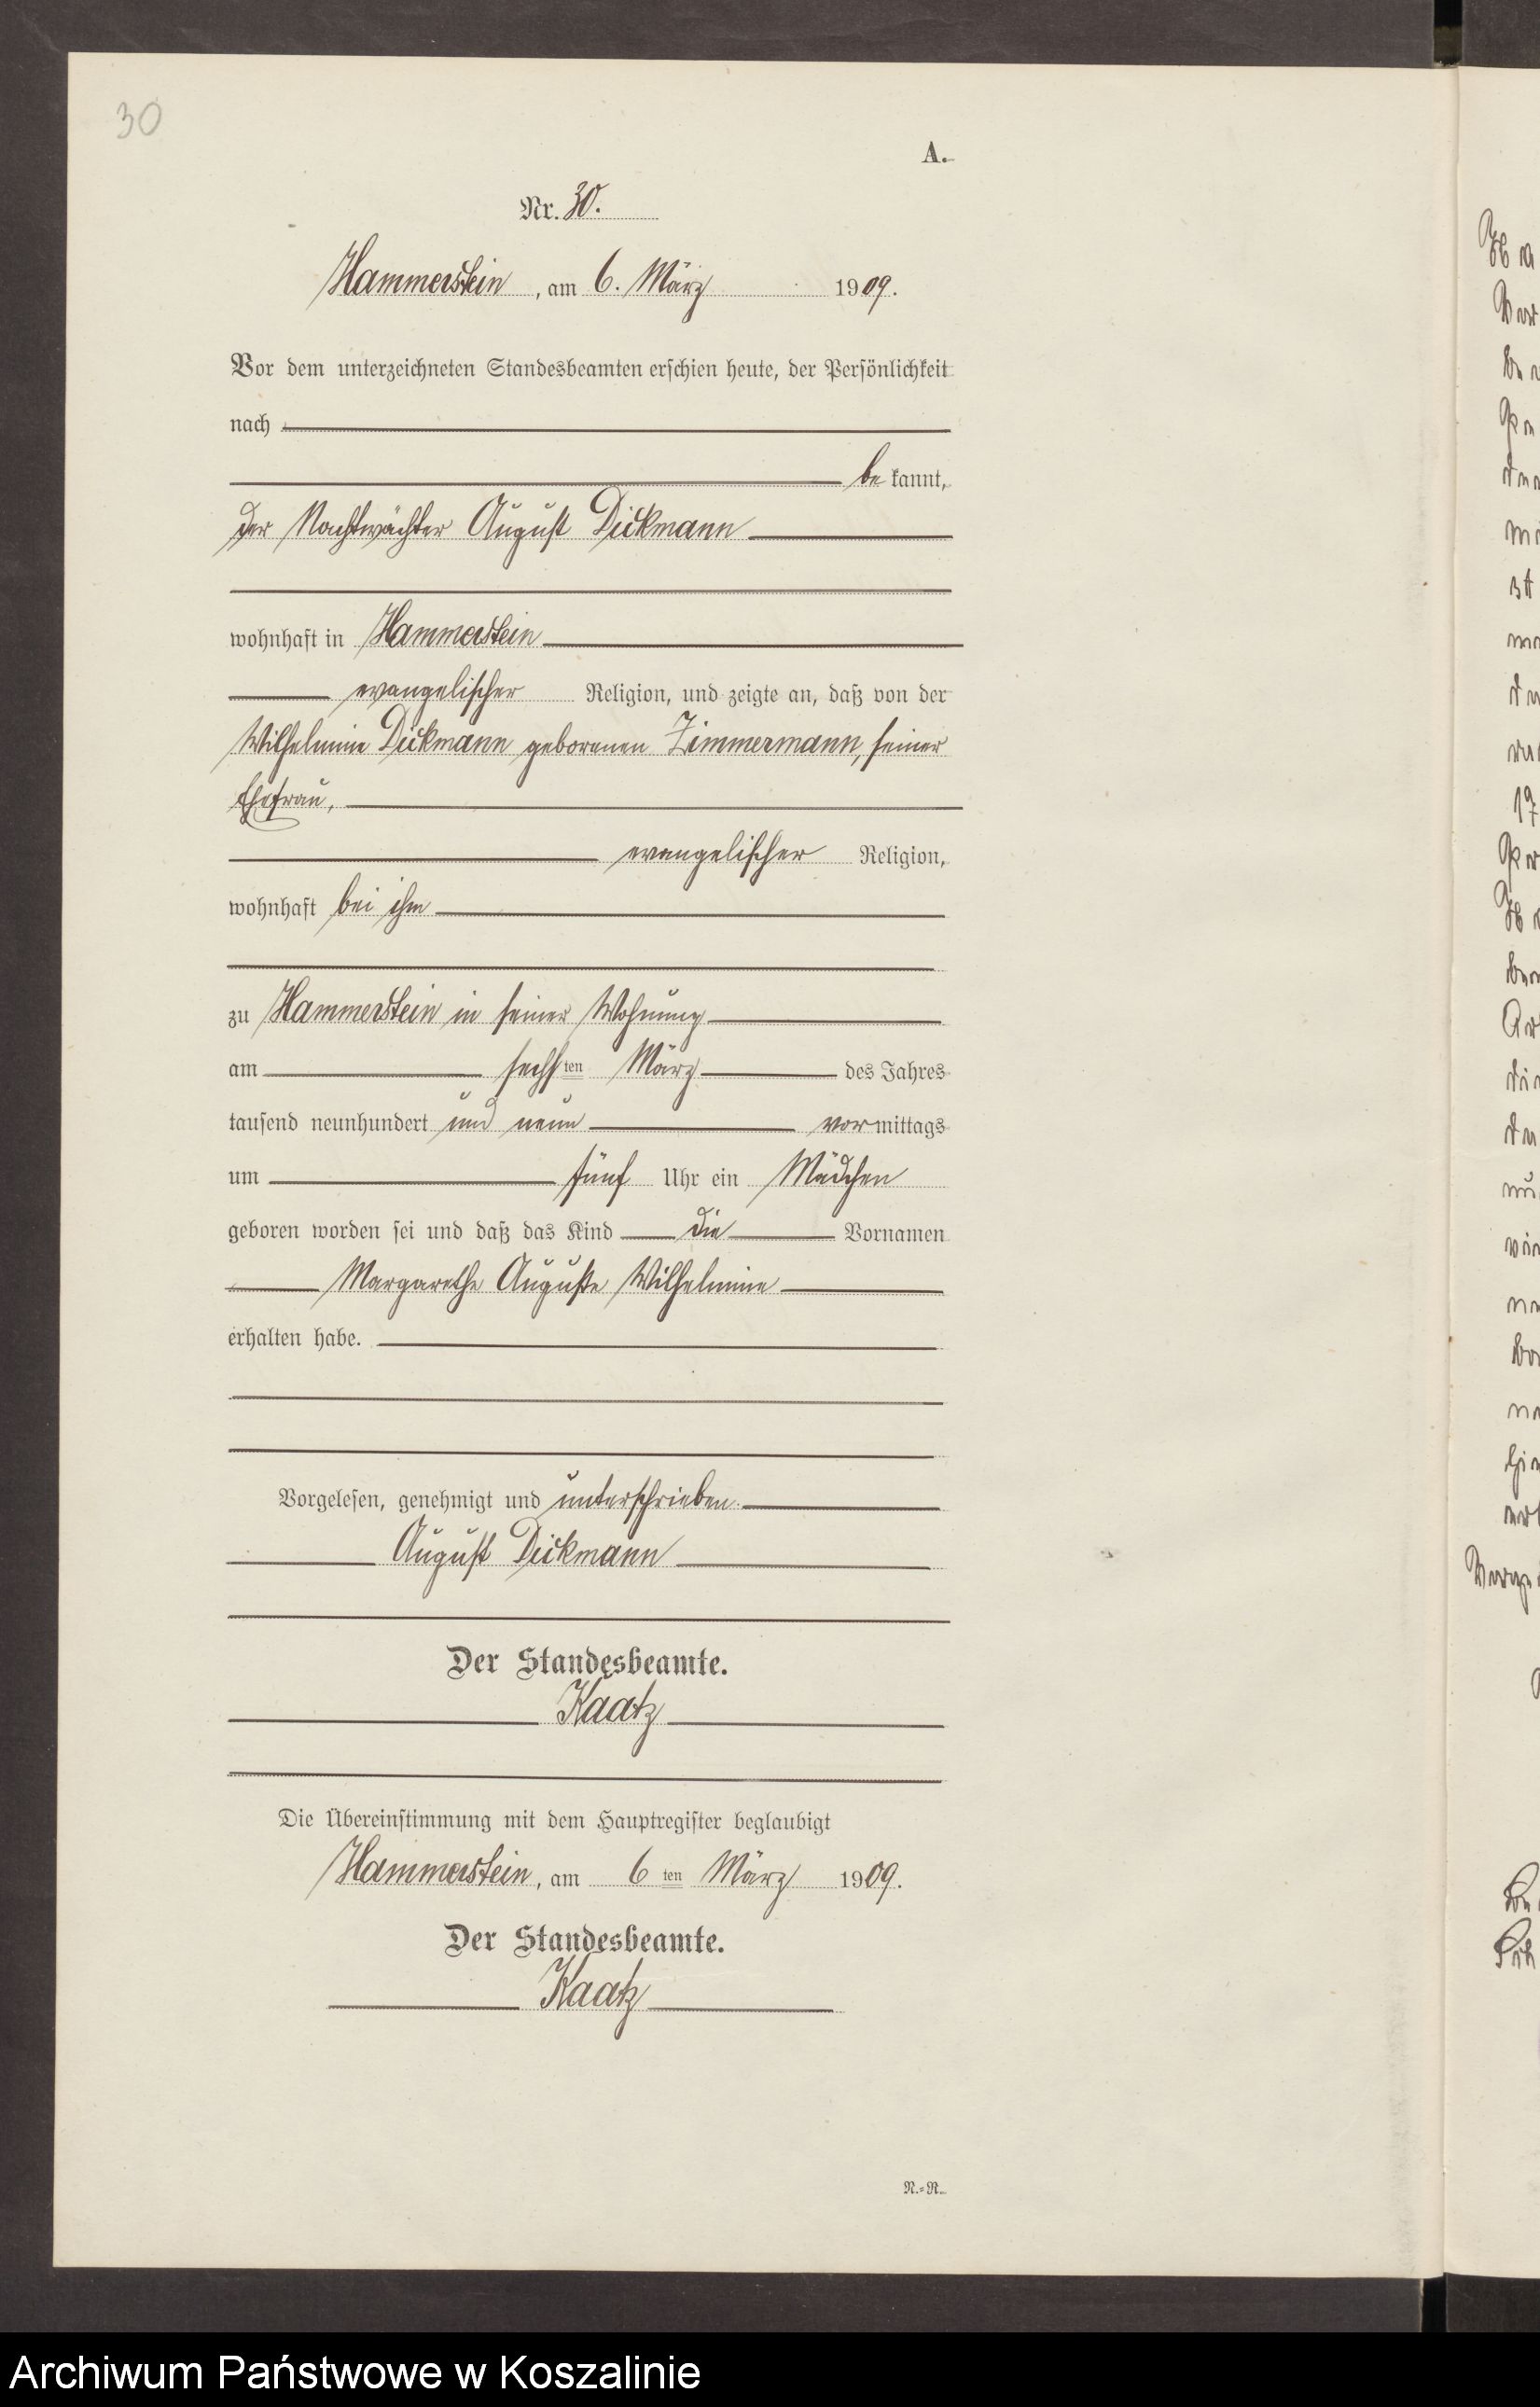 30
A.
Nr. 30.
Hammerstein, am 6. März 1909.
Vor dem unterzeichneten Standesbeamten erschien heute, der Persönlichkeit
nach
be kannt,
der Nachtwächter August Dickmann
wohnhaft in Hammerstein
evangelischer Religion, und zeigte an, daß von der
Wilhelmine Dickmann geborenen Zimmermann, seiner
Ehefrau,
evangelischer Religion,
wohnhaft bei ihm
zu Hammerstein in seiner Wohnung
am sechsten März des Jahres
tausend neunhundert und neun vormittags
um fünf Uhr ein Mädchen
geboren worden sei und daß das Kind die Vornamen
Margarethe Auguste Wilhelmine
erhalten habe.
Vorgelesen, genehmigt und unterschrieben.
August Dickmann
Der Standesbeamte.
Kaatz
Die Übereinstimmung mit dem Hauptregister beglaubigt
Hammerstein, am 6ten März 1909.
Der Standesbeamte.
Kaatz
N.=R.
Archiwum Państwowe w Koszalinie